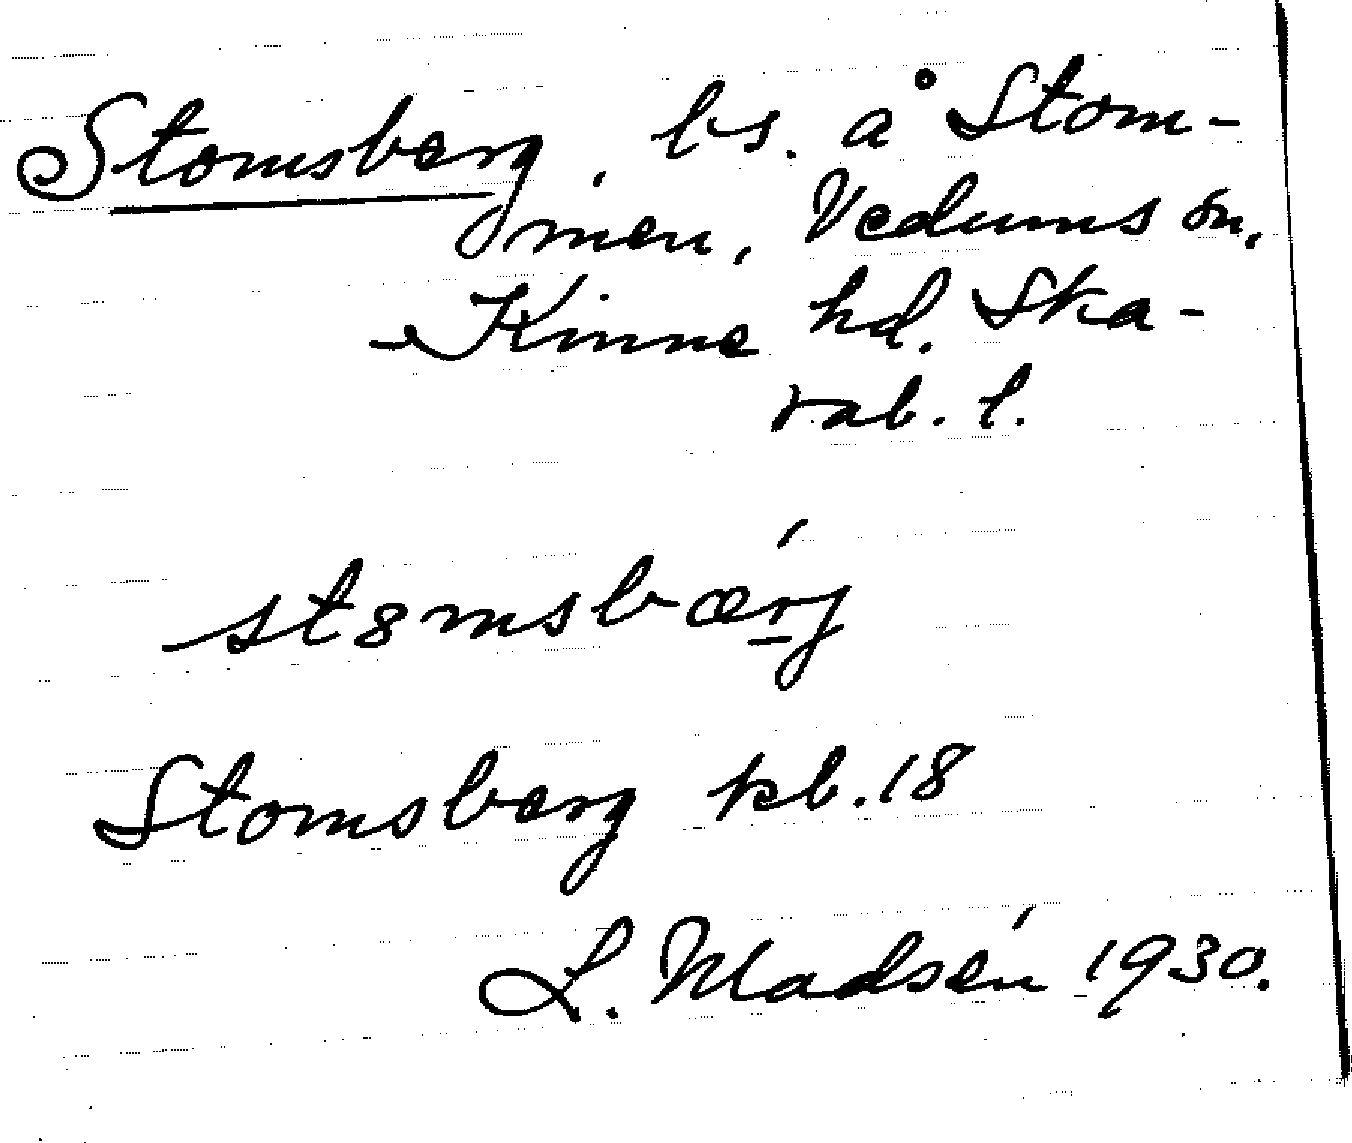 Stomsberg, bs. å Stom-
men, Vedums sn,
Kinne hd. Ska-
rab. l.
st8msbærj́
Stomsberg kb. 18
L. Madsén 1930.